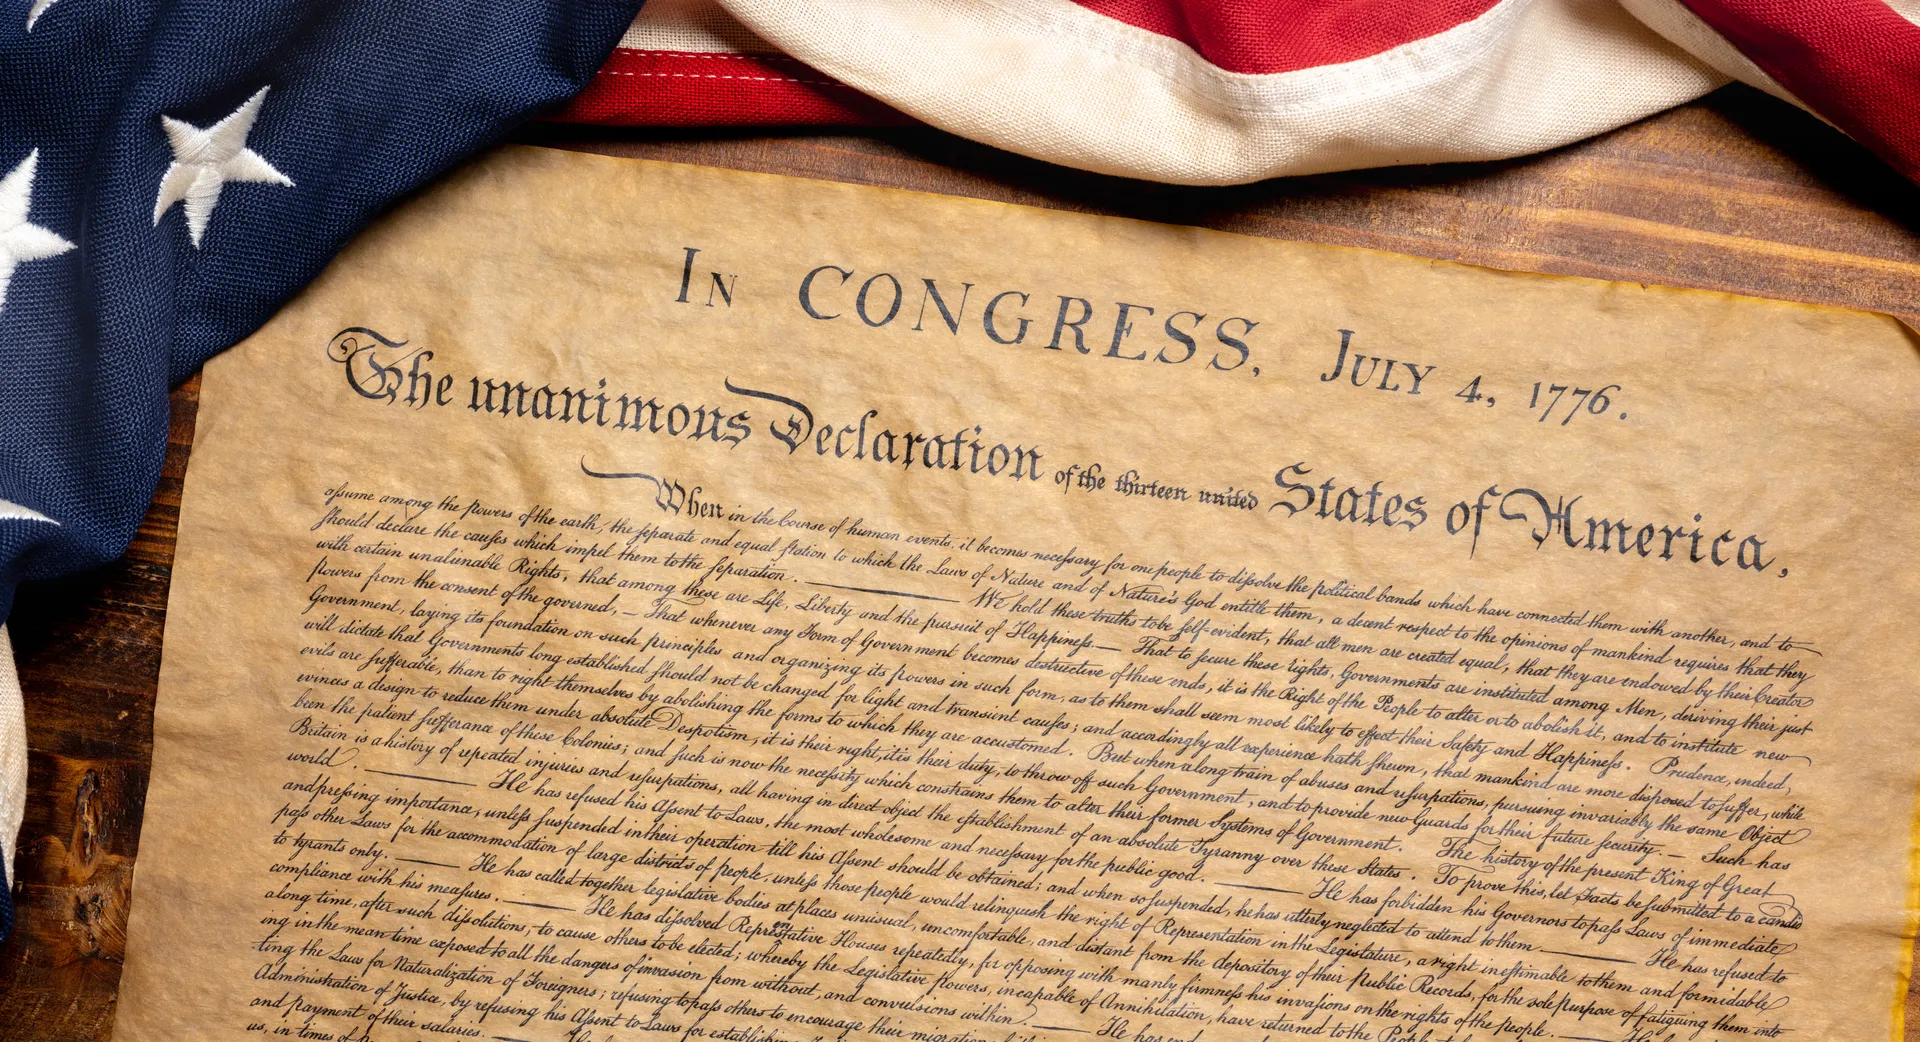 In CONGRESS, July 4, 1776.
The unanimous Declaration of the thirteen united States of America,
When in the Course of human events, it becomes necessary for one people to dissolve the political bands which have connected them with another, and to
assume among the powers of the earth, the separate and equal station to which the Laws of Nature and of Nature's God entitle them, a decent respect to the opinions of mankind requires that they
should declare the causes which impel them to the separation. ——— We hold these truths to be self-evident, that all men are created equal, that they are endowed by their Creator
with certain unalienable Rights, that among these are Life, Liberty and the pursuit of Happiness.— That to secure these rights, Governments are instituted among Men, deriving their just
powers from the consent of the governed, — That whenever any Form of Government becomes destructive of these ends, it is the Right of the People to alter or to abolish it, and to institute new
Government, laying its foundation on such principles and organizing its powers in such form, as to them shall seem most likely to effect their Safety and Happiness. Prudence, indeed,
will dictate that Governments long established should not be changed for light and transient causes; and accordingly all experience hath shewn, that mankind are more disposed to suffer, while
evils are sufferable, than to right themselves by abolishing the forms to which they are accustomed. But when a long train of abuses and usurpations, pursuing invariably the same Object
evinces a design to reduce them under absolute Despotism, it is their right, it is their duty, to throw off such Government, and to provide new Guards for their future security.— Such has
been the patient sufferance of these Colonies; and such is now the necessity which constrains them to alter their former Systems of Government. The history of the present King of Great
Britain is a history of repeated injuries and usurpations, all having in direct object the establishment of an absolute Tyranny over these States. To prove this, let Facts be submitted to a candid
world. ——— He has refused his Assent to Laws, the most wholesome and necessary for the public good. ——— He has forbidden his Governors to pass Laws of immediate
and pressing importance, unless suspended in their operation till his Assent should be obtained; and when so suspended, he has utterly neglected to attend to them. ——— He has refused to
pass other Laws for the accommodation of large districts of people, unless those people would relinquish the right of Representation in the Legislature, a right inestimable to them and formidable
to tyrants only. ——— He has called together legislative bodies at places unusual, uncomfortable, and distant from the depository of their Public Records, for the sole purpose of fatiguing them into
compliance with his measures. ——— He has dissolved Representative Houses repeatedly, for opposing with manly firmness his invasions on the rights of the people. ——— He
along time, after such dissolutions, to cause others to be elected; whereby the Legislative powers, incapable of Annihilation, have returned to the
ing in the mean time exposed to all the dangers of invasion from without, and convulsions within. ——— He has
ting the Laws for Naturalization of Foreigners; refusing to pass others to encourage their
Administration of Justice, by refusing his Assent to Laws for
and payment of their salaries. ———
us, in times of